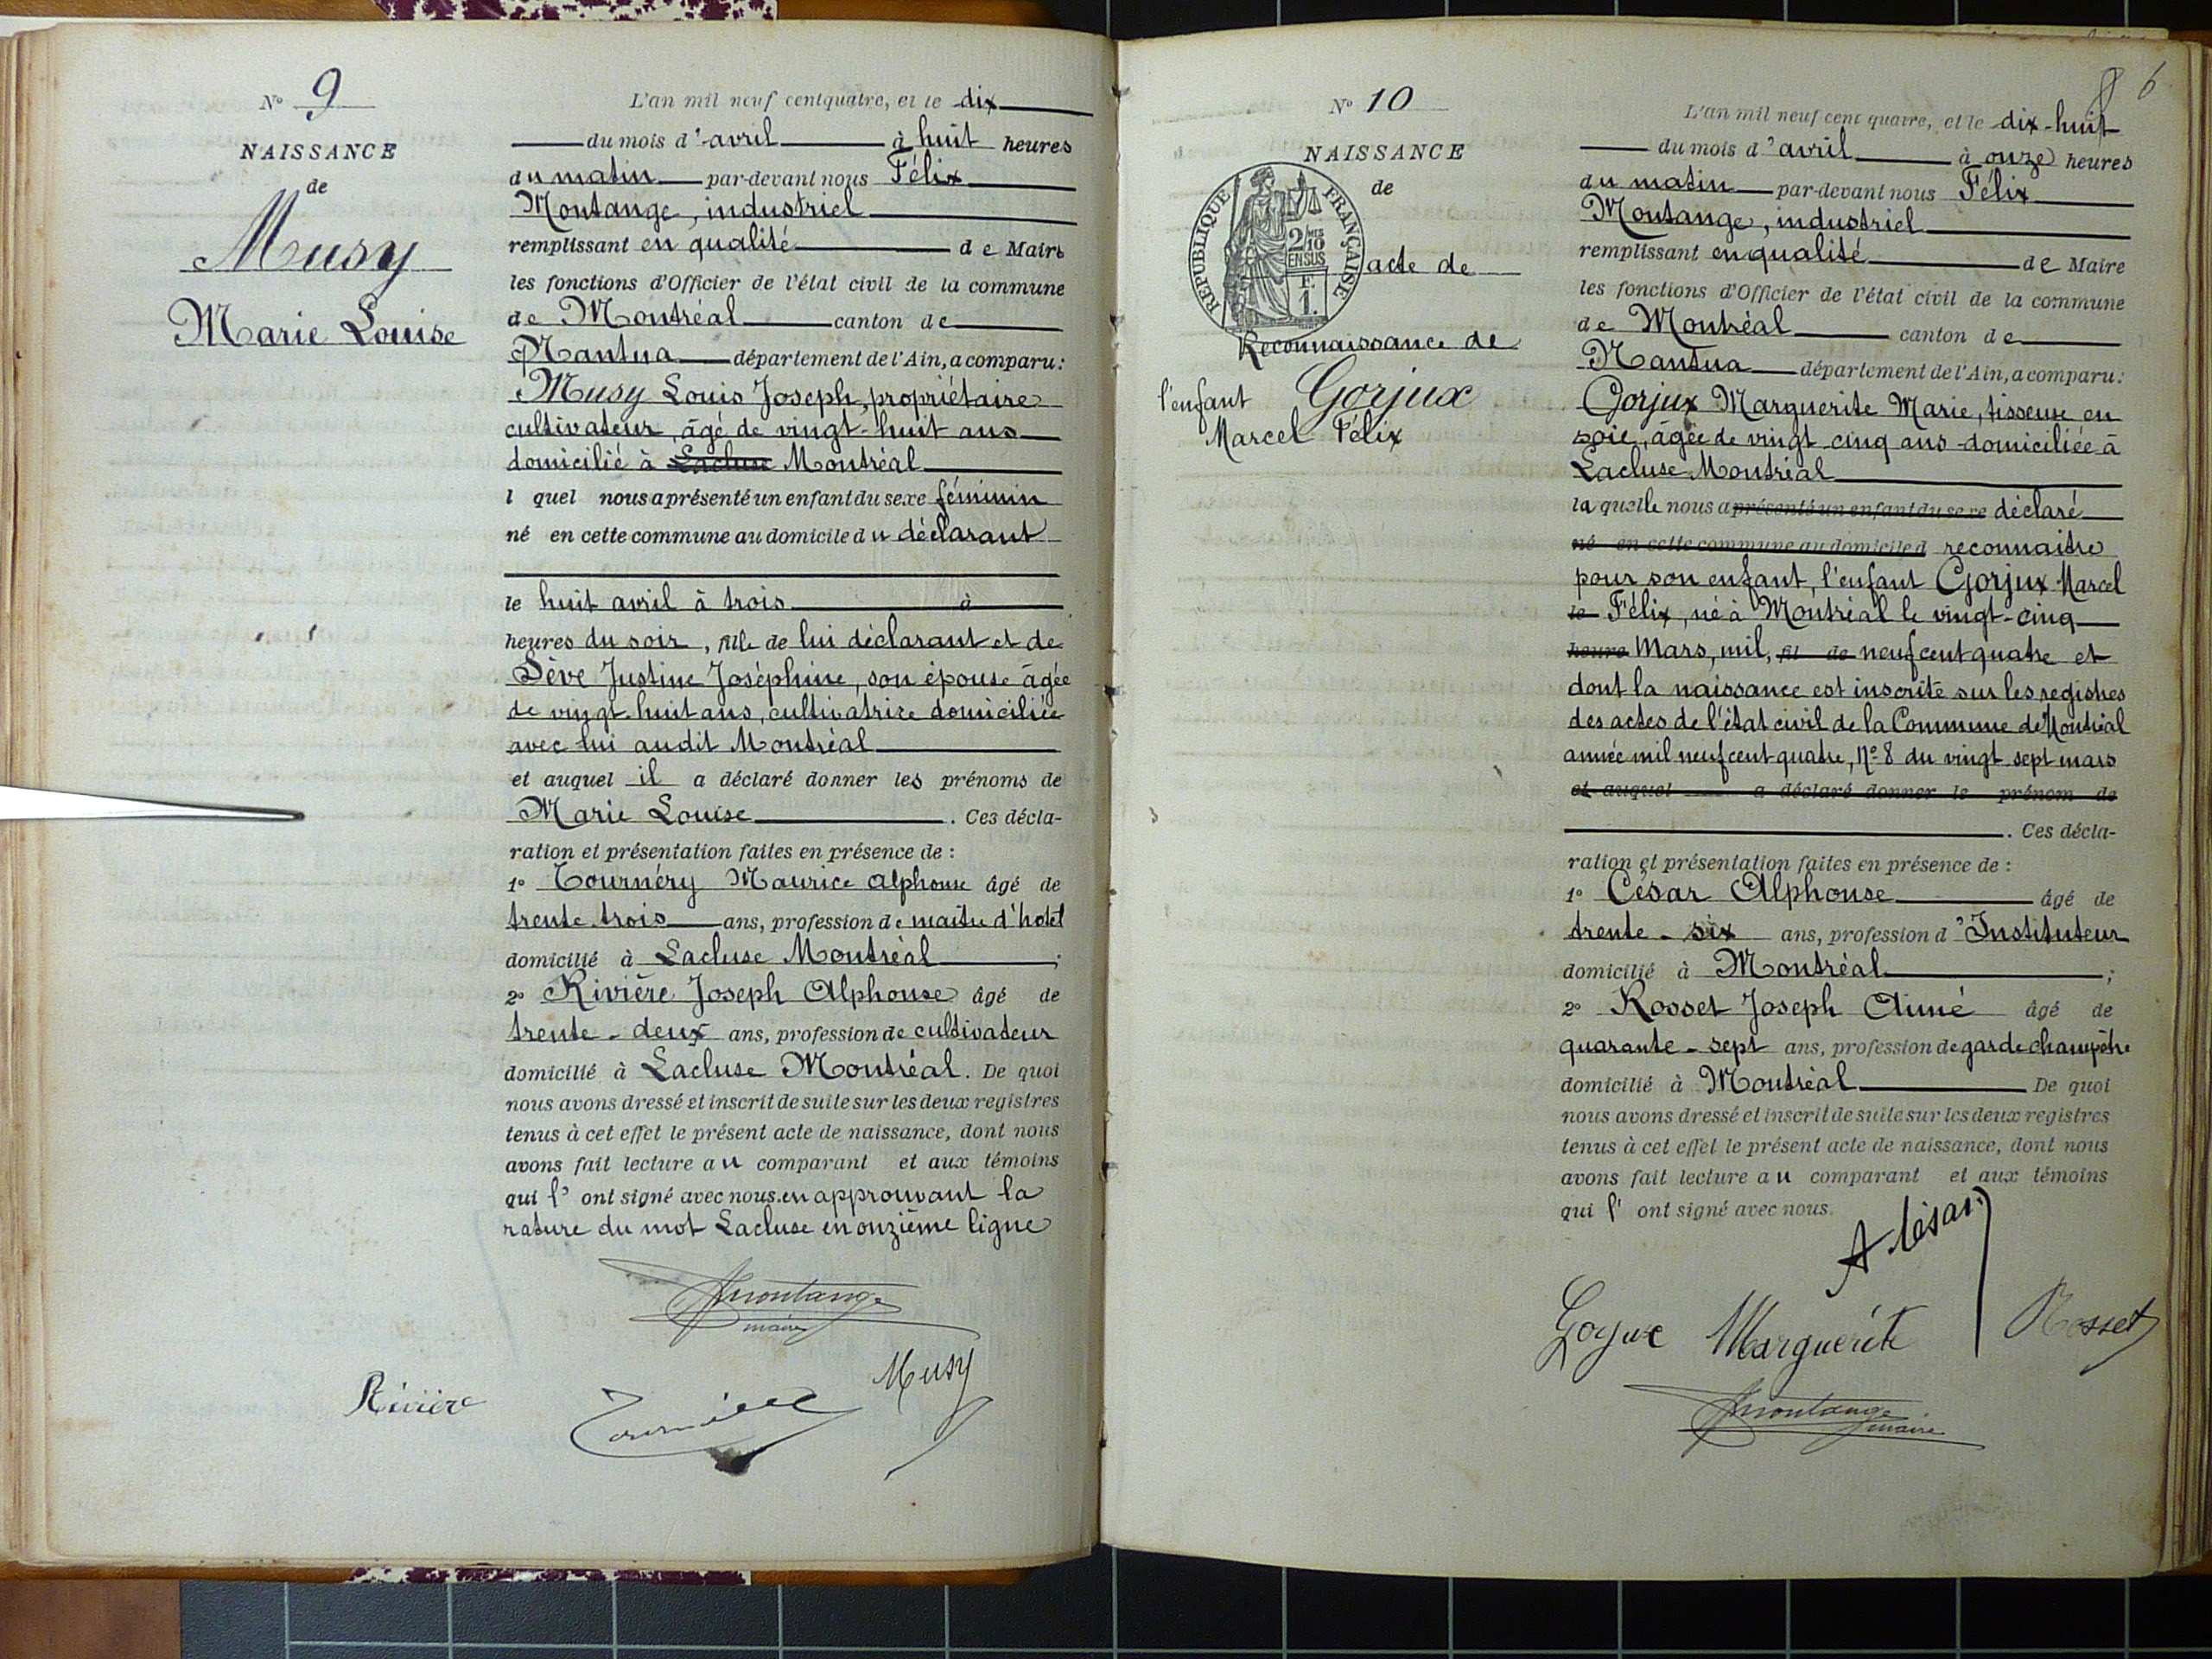 N° 9
NAISSANCE
de
Musy
Marie Louise
L'an mil neuf cent quatre, et le dix
du mois d'avril à huit heures
du matin par-devant nous Félix
Montange, industriel
remplissant en qualité de Maire
les fonctions d'Officier de l'état civil de la commune
de Montréal canton de
Nantua département de l'Ain, a comparu :
Musy Louis Joseph, propriétaire
cultivateur, âgé de vingt-huit ans
domicilié à Lacluse Montréal
l quel nous a présenté un enfant du sexe féminin
né en cette commune au domicile du déclarant
le huit avril à trois à
heures du soir, fille de lui déclarant et de
Sève Justine Joséphine, son épouse âgée
de vingt-huit ans, cultivatrice domiciliée
avec lui audit Montréal
et auquel il a déclaré donner les prénoms de
Marie Louise. Ces décla-
ration et présentation faites en présence de :
1° Tournéry Maurice Alphonse âgé de
trente trois ans, profession de maître d'hotel
domicilié à Lacluse Montréal ;
2° Rivière Joseph Alphonse âgé de
trente-deux ans, profession de cultivateur
domicilié à Lacluse Montréal. De quoi
nous avons dressé et inscrit de suite sur les deux registres
tenus à cet effet le présent acte de naissance, dont nous
avons fait lecture au comparant et aux témoins
qui l'ont signé avec nous. en approuvant la
rature du mot Lacluse en onzième ligne
Montange
maire
Musy
Rivière
6
N° 10
NAISSANCE
de
RÉPUBLIQUE FRANÇAISE
2/10
EN SUS
F.
1.
acte de
Reconnaissance de
l'enfant Gorjux
Marcel Félix
L'an mil neuf cent quatre, et le dix-huit
du mois d'avril à onze heures
du matin par-devant nous Félix
Montange, industriel
remplissant en qualité de Maire
les fonctions d'Officier de l'état civil de la commune
de Montréal canton de
Nantua département de l'Ain, a comparu :
Gorjux Marguerite Marie, tisseuse en
soie, âgée de vingt cinq ans domiciliée à
Lacluse Montréal
laquelle nous a présenté un enfant du sexe déclaré
né en cette commune au domicile d reconnaitre
pour son enfant, l'enfant Gorjux Marcel
le Félix, né à Montréal le vingt-cinq
heure Mars, mil, fil de neuf cent quatre et
dont la naissance est inscrite sur les registres
des actes de l'état civil de la Commune de Montréal
année mil neuf cent quatre, N° 8 du vingt sept mars
et auquel a déclaré donner le prénom de
. Ces décla-
ration et présentation faites en présence de :
1° César Alphonse âgé de
trente-six ans, profession d'Instituteur
domicilié à Montréal ;
2° Rosset Joseph Aimé âgé de
quarante-sept ans, profession de garde champêtre
domicilié à Montréal De quoi
nous avons dressé et inscrit de suite sur les deux registres
tenus à cet effet le présent acte de naissance, dont nous
avons fait lecture au comparant et aux témoins
qui l'ont signé avec nous.
A César
Gorjux Marguerite
Rosset
Montange
maire